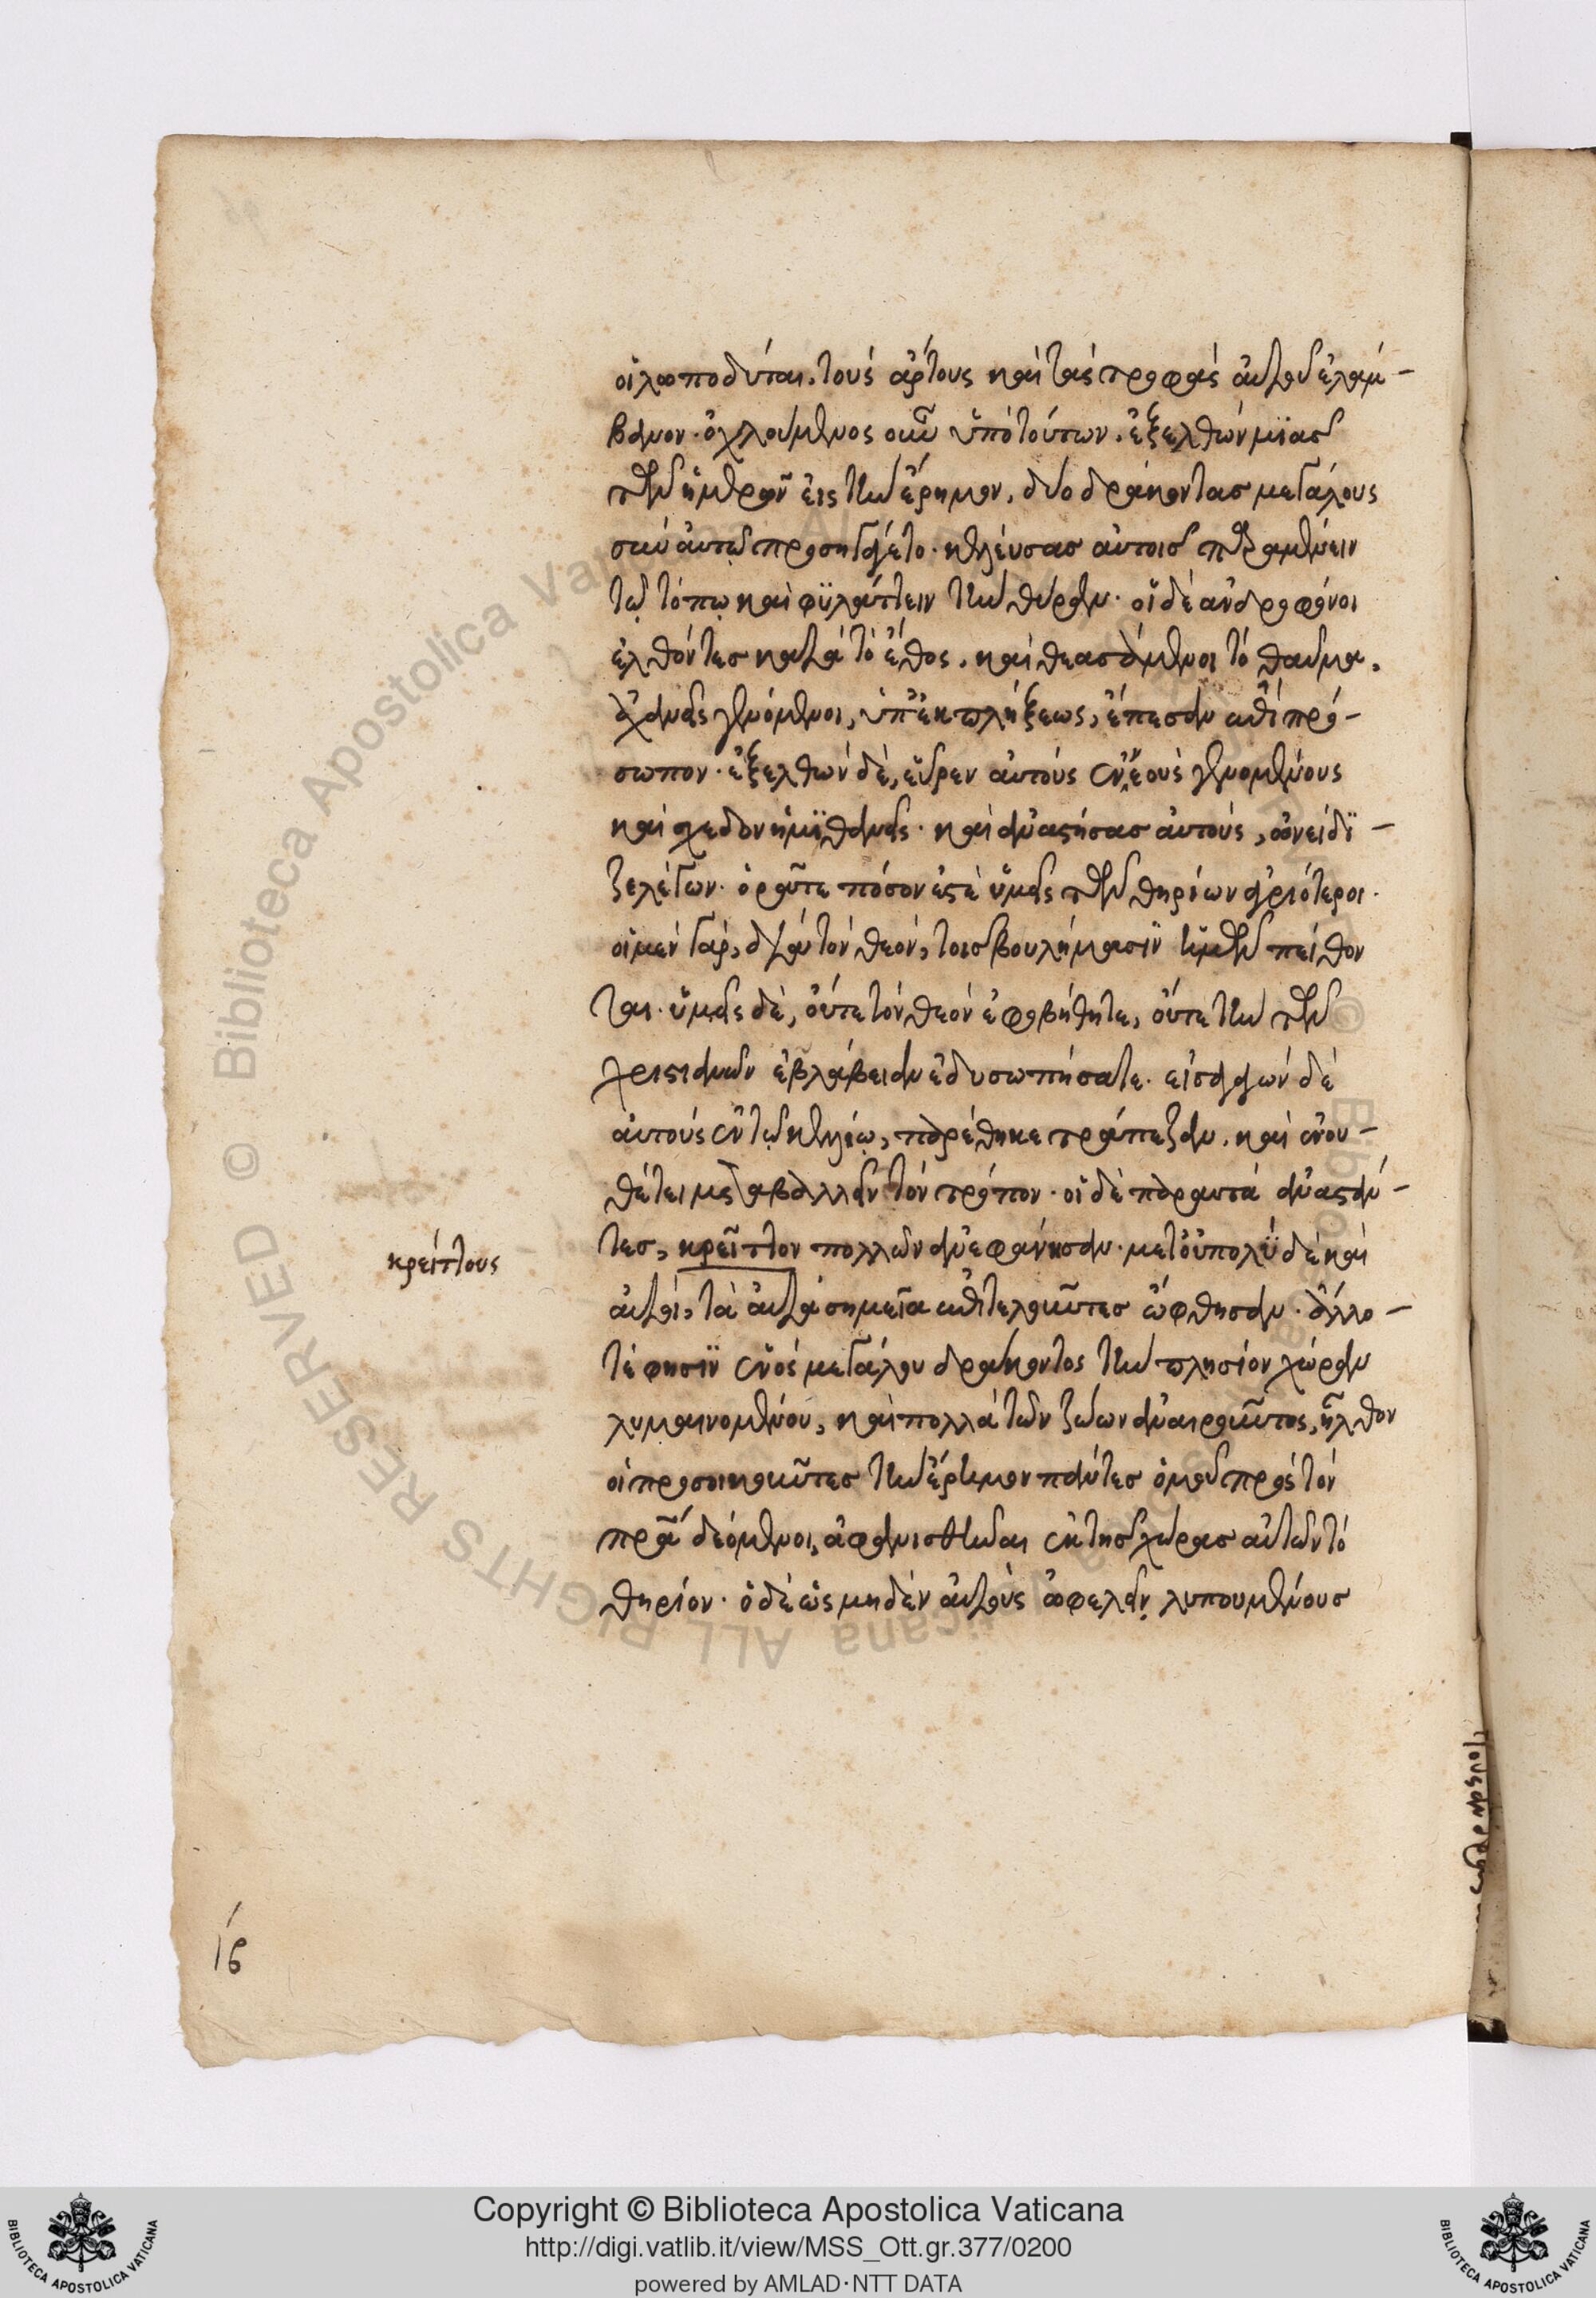 οἱ λωποδύται, τοὺς ἄρτους καὶ τὰς τροφὰς αὐτοῦ ἐλάμ-
βανον. ὀχλούμενος οὖν ὑπὸ τούτων. ἐξελθὼν μϊᾶς
τῶν ἡμερῶν εἰς τὴν ἔρημον, δύο δράκοντας μεγάλους
σὺν αὐτῷ προσηγάγετο. κελεύσας αὐτοῖς παραμένειν
τῷ τόπῳ καὶ φϋλάττειν τὴν θύραν. οἱ δὲ ἀνδροφόνοι
ἐλθόντες κατὰ τὸ ἔθος, καὶ θεασάμενοι τὸ θαῦμα,
ἀχανεῖς γενόμενοι, ὑπ' ἐκπλήξεως, ἔπεσαν ἐπὶ πρό-
σωπον. ἐξελθὼν δὲ, εὗρεν αὐτοὺς ἐννεοὺς γενομένους
καὶ σχεδὸν ἡμϊθανεῖς. καὶ ἀναστήσας αὐτοὺς, ὀνείδϊ-
ζε λέγων. ὁρᾶτε πόσον ἐστὲ ὑμεῖς τῶν θηρίων ἀγριότεροι.
οἱ μὲν γὰρ, διὰ τὸν θεὸν, τοῖς βουλήμασϊν ἡμῶν πείθον
ται. ὑμεῖς δὲ, οὔτε τὸν θεὸν ἐφοβήθητε, οὔτε τὴν τῶν
χριστιανῶν εὐλάβειαν ἐδυσωπήσατε. εἰσαγαγὼν δὲ
αὐτοὺς ἐν τῷ κελλίῳ, παρέθηκε τράπεζαν. καὶ ἐνου-
θέτει μεταβάλλειν τὸν τρόπον. οἱ δὲ παραυτὰ ἀναστάν-
τες, κρεῖττον πολλῶν ἀνεφάνησαν. μετ' οὐ πολϋ δὲ καὶ
κρείττους
αὐτοὶ, τὰ αὐτὰ σημεῖα ἐπιτελοῦντες ὤφθησαν. ἄλλο-
τέ φησϊν ἑνὸς μεγάλου δράκοντος τὴν πλησίον χώραν
λυμαινομένου, καὶ πολλὰ τῶν ζώων ἀναιροῦντος, ἦλθον
οἱ προσοικοῦντες τὴν ἔρημον πάντες ὁμοῦ πρὸς τὸν
πρα δεόμενοι, ἀφανισθῆναι ἐκ τῆς χώρας αὐτῶν τὸ
θηρίον. ὁ δὲ ὡς μηδὲν αὐτοὺς ὠφελεῖν λυπουμένους
ις
Copyright © Biblioteca Apostolica Vaticana
http://digi.vatlib.it/view/MSS_Ott.gr.377/0200
powered by AMLAD·NTT DATA